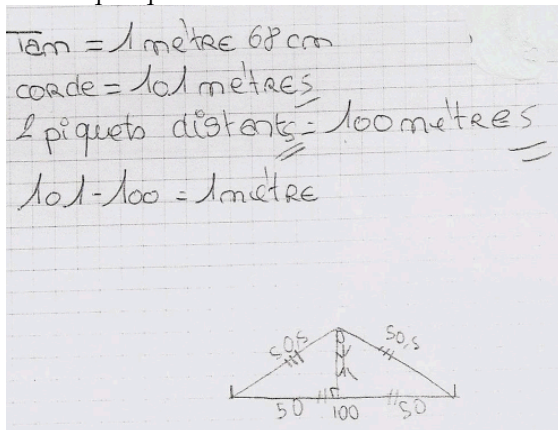 Tom = 1 mètre 68 cm
corde = 101 mètres
2 piquets distants = 100 mètres
101 - 100 = 1 mètre
50,5
50,5
50
100
50